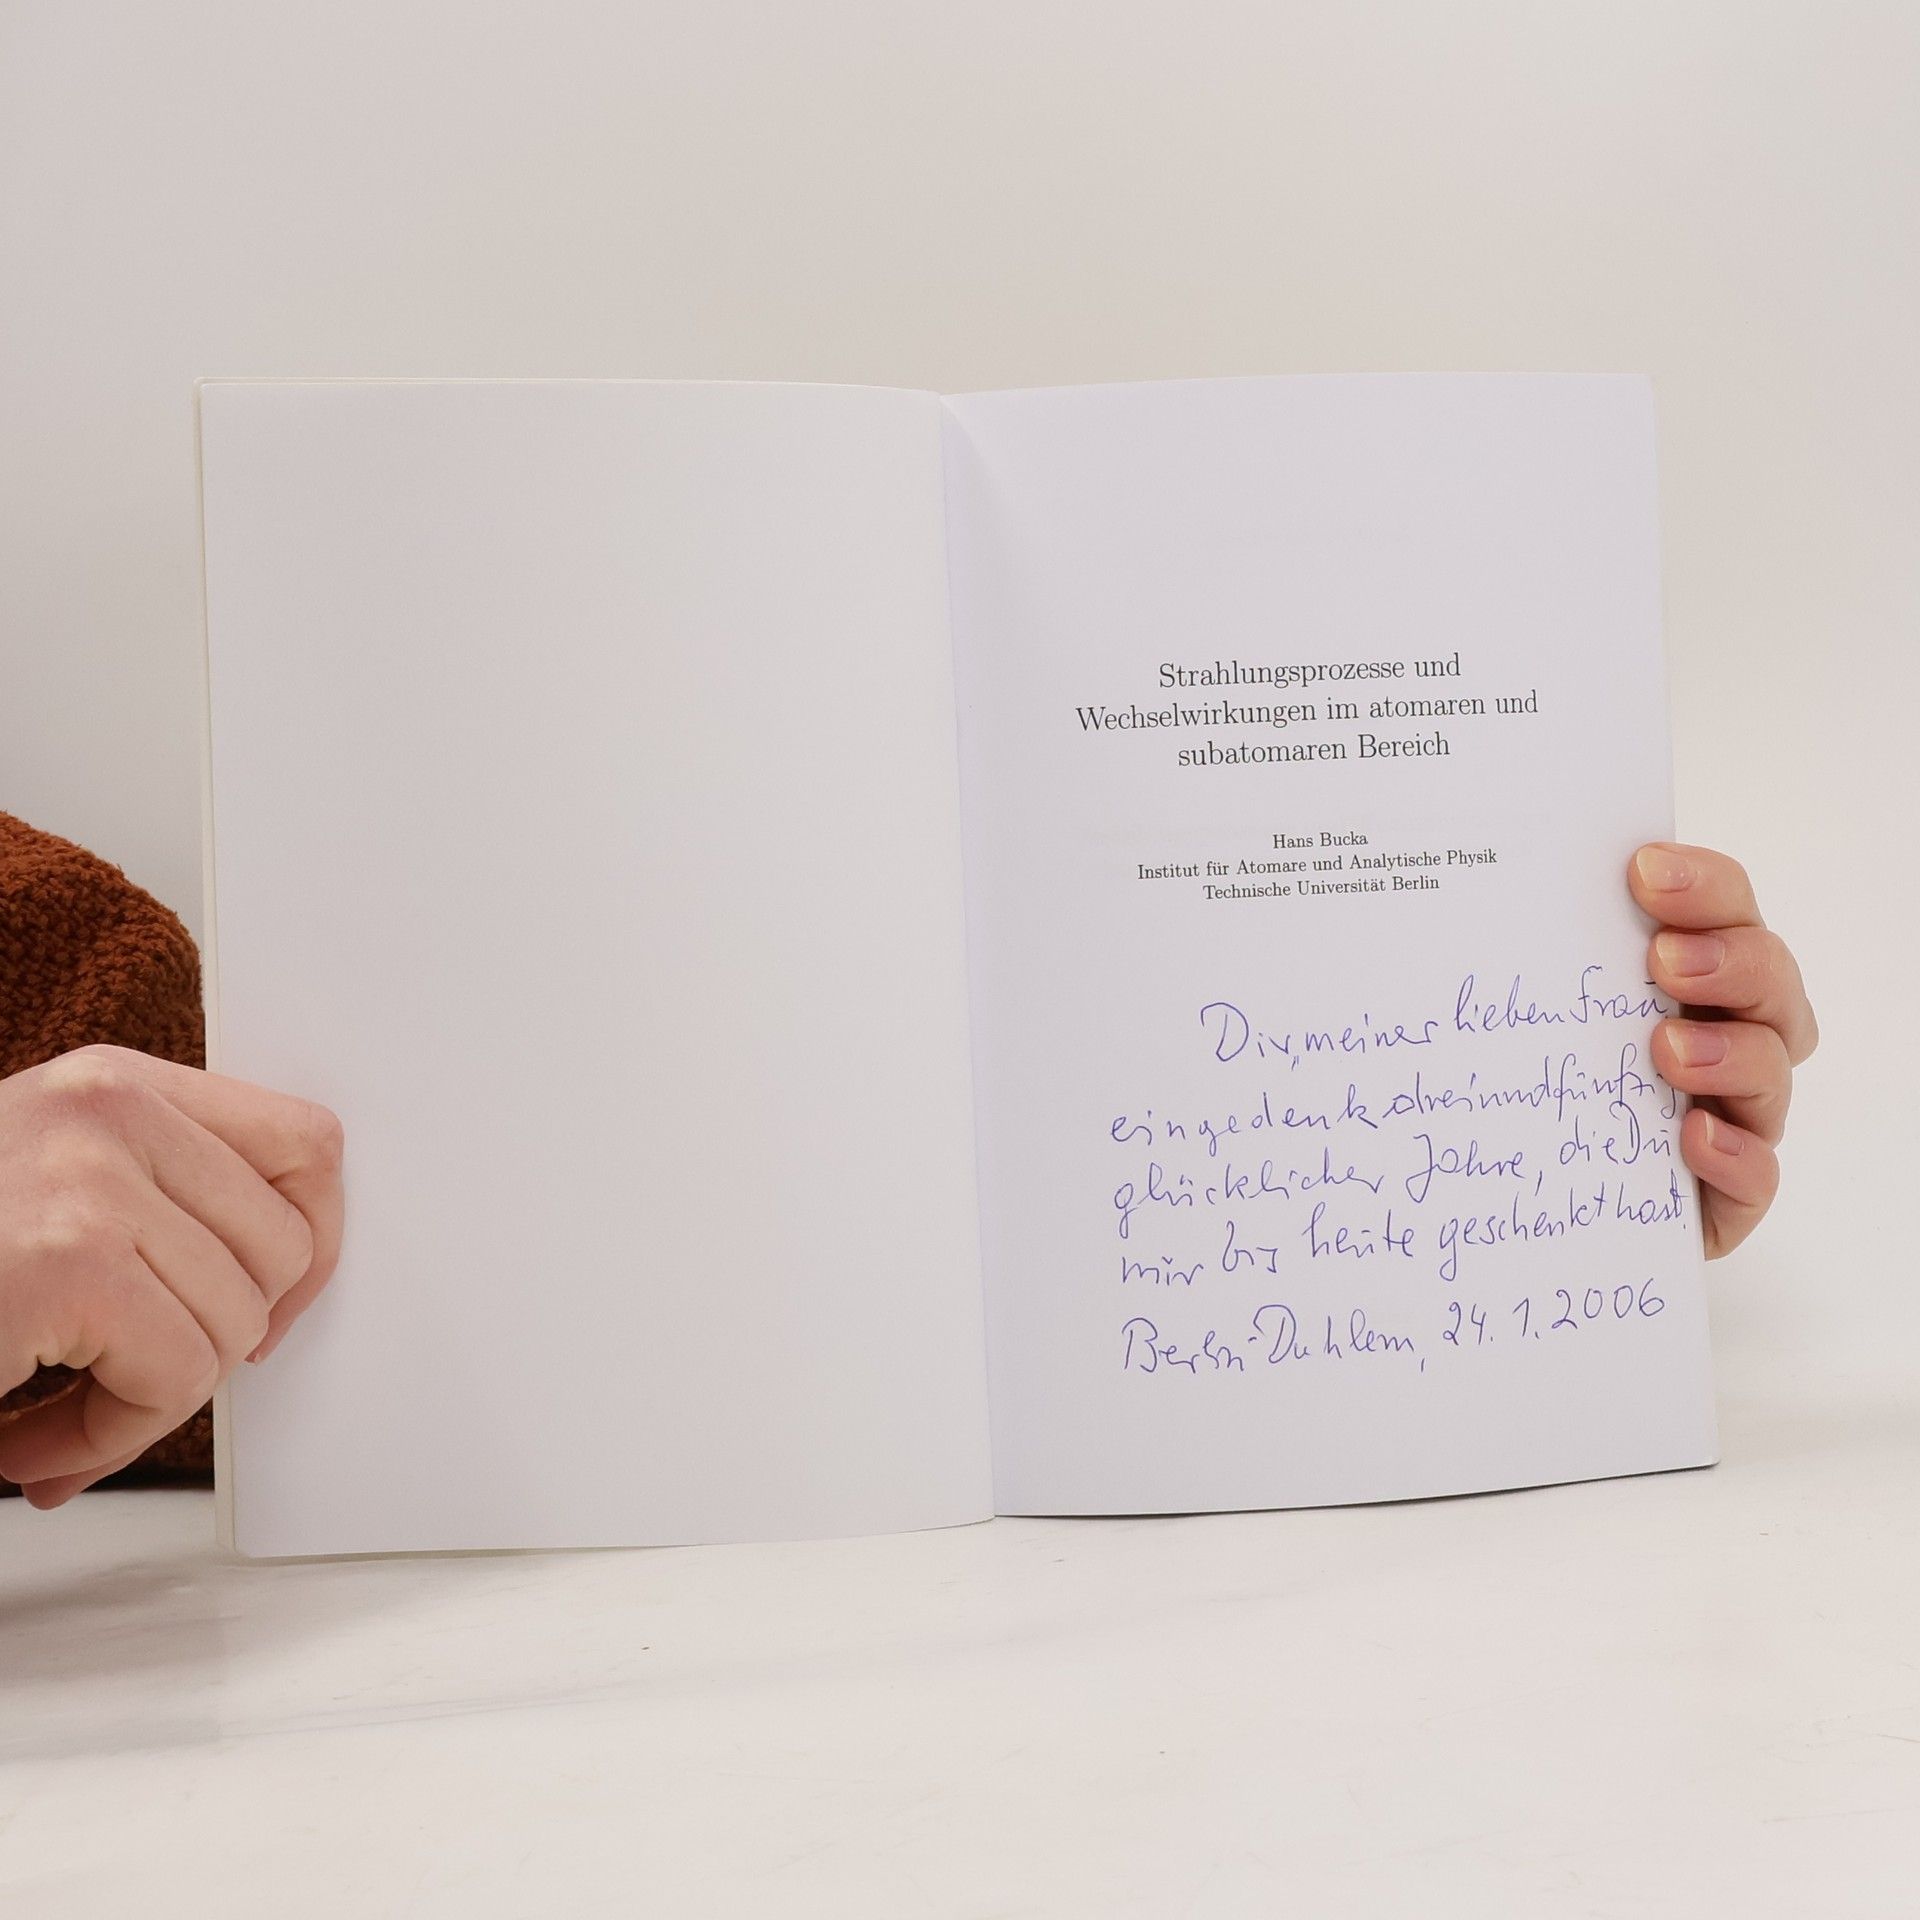 Strahlungsprozesse und
Wechselwirkungen im atomaren und
subatomaren Bereich
Hans Bucka
Institut für Atomare und Analytische Physik
Technische Universität Berlin
Dir, meiner lieben Frau
eingedenk dreiundfünfzig
glücklicher Jahre, die Du
mir bis heute geschenkt hast.
Berlin-Dahlem, 24.1.2006